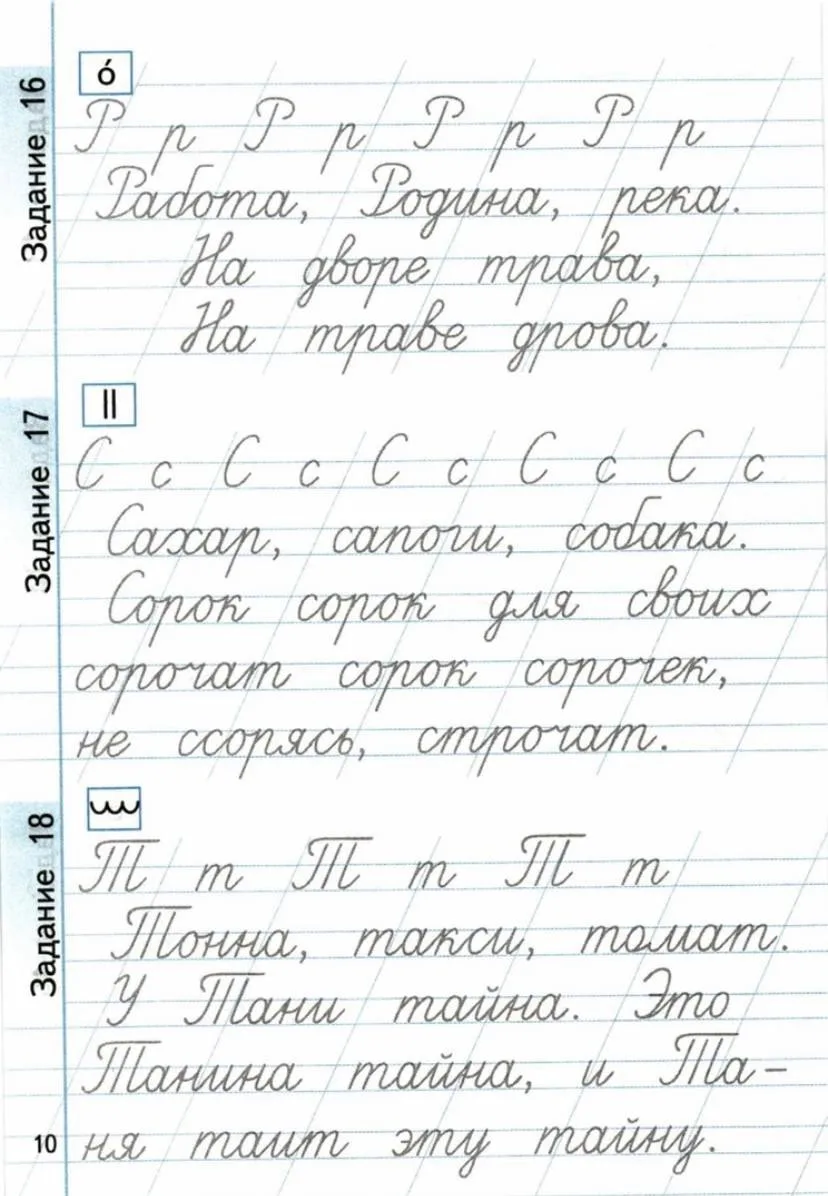 Задание 16
о́
Р р Р р Р р Р р
Работа, Родина, река.
На дворе трава,
На траве дрова.
Задание 17
||
С с С с С с С с С с
Сахар, сапоги, собака.
Сорок сорок для своих
сорочат сорок сорочек,
не ссорясь, строчат.
Задание 18
Т т Т т Т т
Тонна, такси, томат.
У Тани тайна. Это
Танина тайна, и Та-
ня таит эту тайну.
10